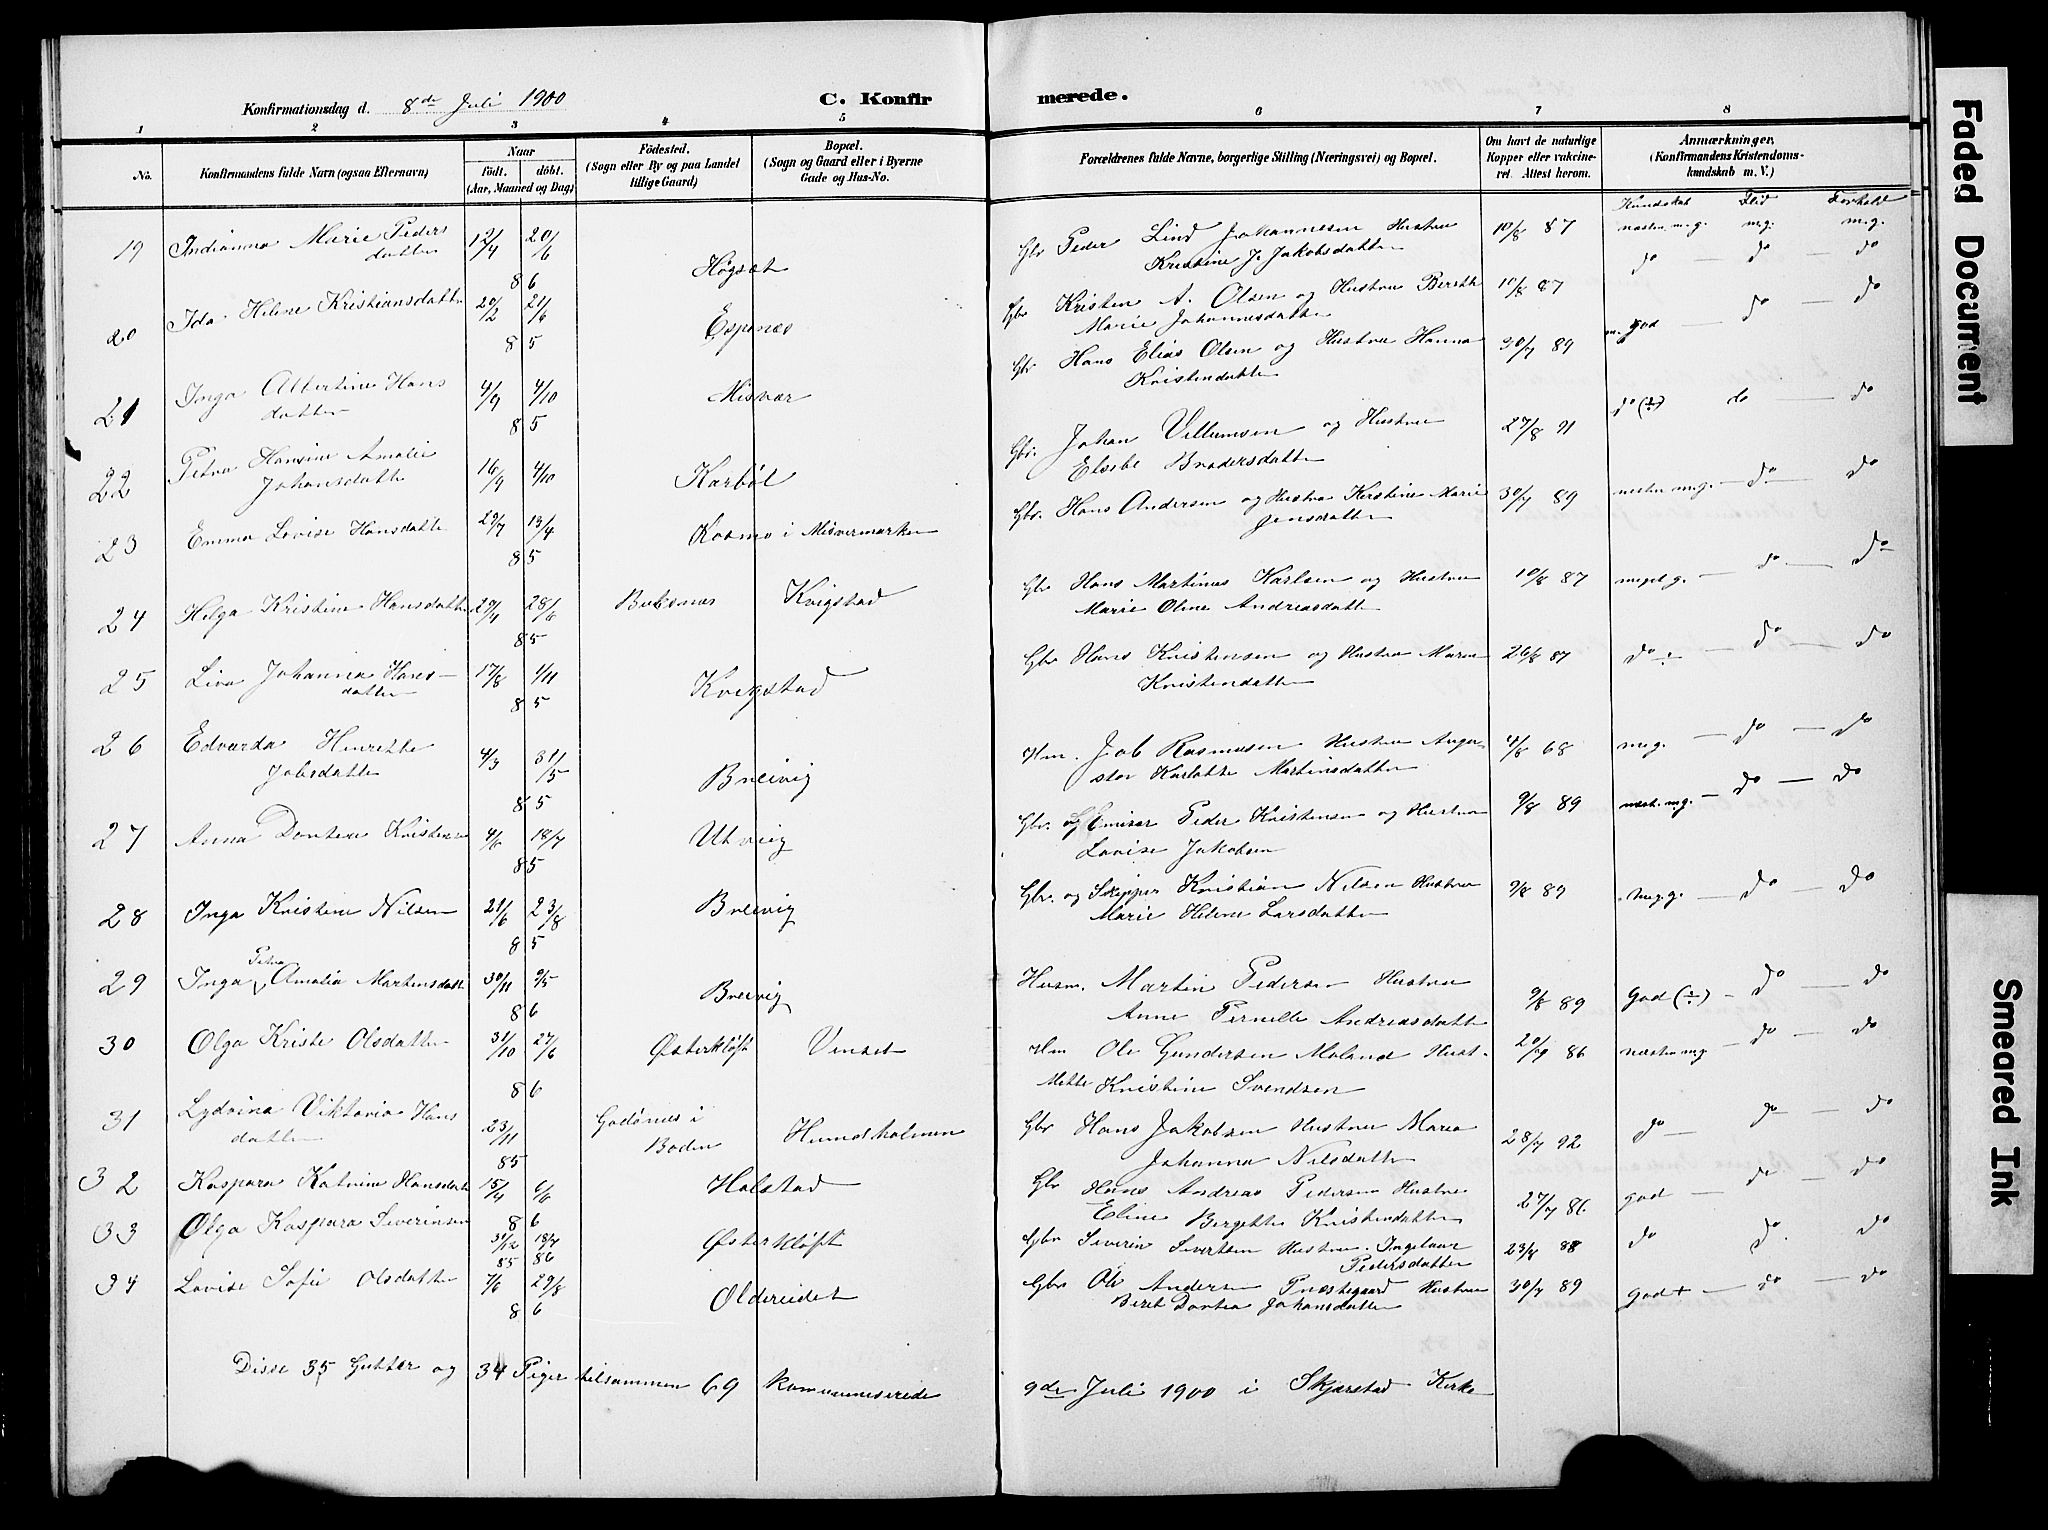 Konfirmationsdag d. 8de Juli 1900 C. Konfirmerede.
1 2 3 4 5 6 7 8
No. Konfirmandens fulde Navn (ogsaa Efternavn) Naar födt. döbt. (Aar, Maaned og Dag) Födested. (Sogn eller By og paa Landet tillige Gaard) Bopæl. (Sogn og Gaard eller i Byerne Gade og Hus-No. Forældrenes fulde Navne, borgerlige Stilling (Næringsvei) og Bopæl. Om havt de naturlige Kopper eller vakcineret. Attest herom. Anmærkninger. (Konfirmandens Kristendomskundskab m. V.)
Kundskab Flid Forhold
19 Indianna Marie Peders 12/4 20/6 Gbr Peder Lind Johannesen Hustru 10/8 87 næsten m.g. m.g. m.g.
datter 86 Høgset Kristine J. Jakobsdatter do — do — do
20 Ida Helene Kristiansdatter 20/2 21/6 Espenes Gbr Kristen A. Olsen og Hustru Berith 10/8 87
85 Marie Johannesdatter m. god — do — do
21 Inga Albertine Hans 4/9 4/10 Misvær Gbr Hans Elias Olsen og Hustru Hanna 30/7 89
datter 85 Kristendatter do (÷) do — do
22 Petra Hansine Amalie 16/9 4/10 Karbøl Gbr. Johan Villumsen og Hustru 27/8 91
Johansdatter Elsebe Brodersdatter
23 Emma Lovise Hansdatter 29/7 13/4 Kosmo i Misvermarken Gbr. Hans Andersen og Hustru Kirstine Marie 30/7 89 nesten m.g. — do — do
85 Jensdatter
24 Helga Kristine Hansdatter 29/4 28/6 Buksnes Kvigstad Gbr Hans Martinus Karlsen og Hustru 10/8 87 meget g. — do — do
85 Marie Oline Andreasdatter
25 Liva Johanna Hans- 17/8 1/11 Kvigstad Gbr Hans Kristensen og Hustru Maren 26/8 87 do ÷ — do — do
datter 85 Kristendatter
26 Edvarda Henrette 4/3 31/5 Breivig Hm. Job Rasmusen Hustru Augu- 4/8 68 m.g. — do — do
Jobsdatter 85 sta Karlotte Martinsdatter
27 Anna Dortea Kristensen 4/6 18/7 Utvig Gbr. og Emisær Peder Kristensen og Hustru 9/8 89 næst. m.g. — do — do
85 Lovise Jakobsen
28 Inga Kristine Nilsen 21/6 23/8 Breivig Gbr. og Skipper Kristian Nilsen Hustru 9/8 89 meg.g. — do — do
85 Marie Helene Larsdatter
Petra
29 Inga Amalia Martinsdatter 30/11 9/5 Breivig Husm. Martin Pedersen Hustru 9/8 89 God (÷) — do — do
86 Anne Pernelle Andreasdatter
30 Olga Kriste Olsdatter 31/10 27/6 Østerkløft Venset Hm Ole Gundersen Moland Hust- 20/9 86 næsten mg — do — do
86 Mette Kristine Svendsen
31 Lydvina Viktoria Hans 23/11 Godønes i Gbr Hans Jakobsen Hustru Maren 28/7 92 do — do — do
datter 85 Bodin Hundholmen Johanna Nilsdatter
32 Kaspara Katrine Hansdatter 15/4 6/6 Halstad Gbr Hans Andreas Pedersen Hustru 27/7 86 god — do — do
86 Eline Bergette Kristendatter
33 Olga Kaspara Severinsen 31/12 85 18/7 86 Østerkløft Gbr Severin Sivertsen Hustru Ingeborg 23/8 88 do do. do
Pedersdatter
34 Lovise Sofie Olsdatter 7/6 29/8 Oldereidet Gbr Ole Andersen Præstegaard Hustru 30/7 89 god + — do — do
86 Beret Dortea Johansdatter
Disse 35 Gutter og 34 Piger tilsammen 69 kommuneserede 9de Juli 1900 i Skjerstad Kirke
Faded Document
Smeared Ink